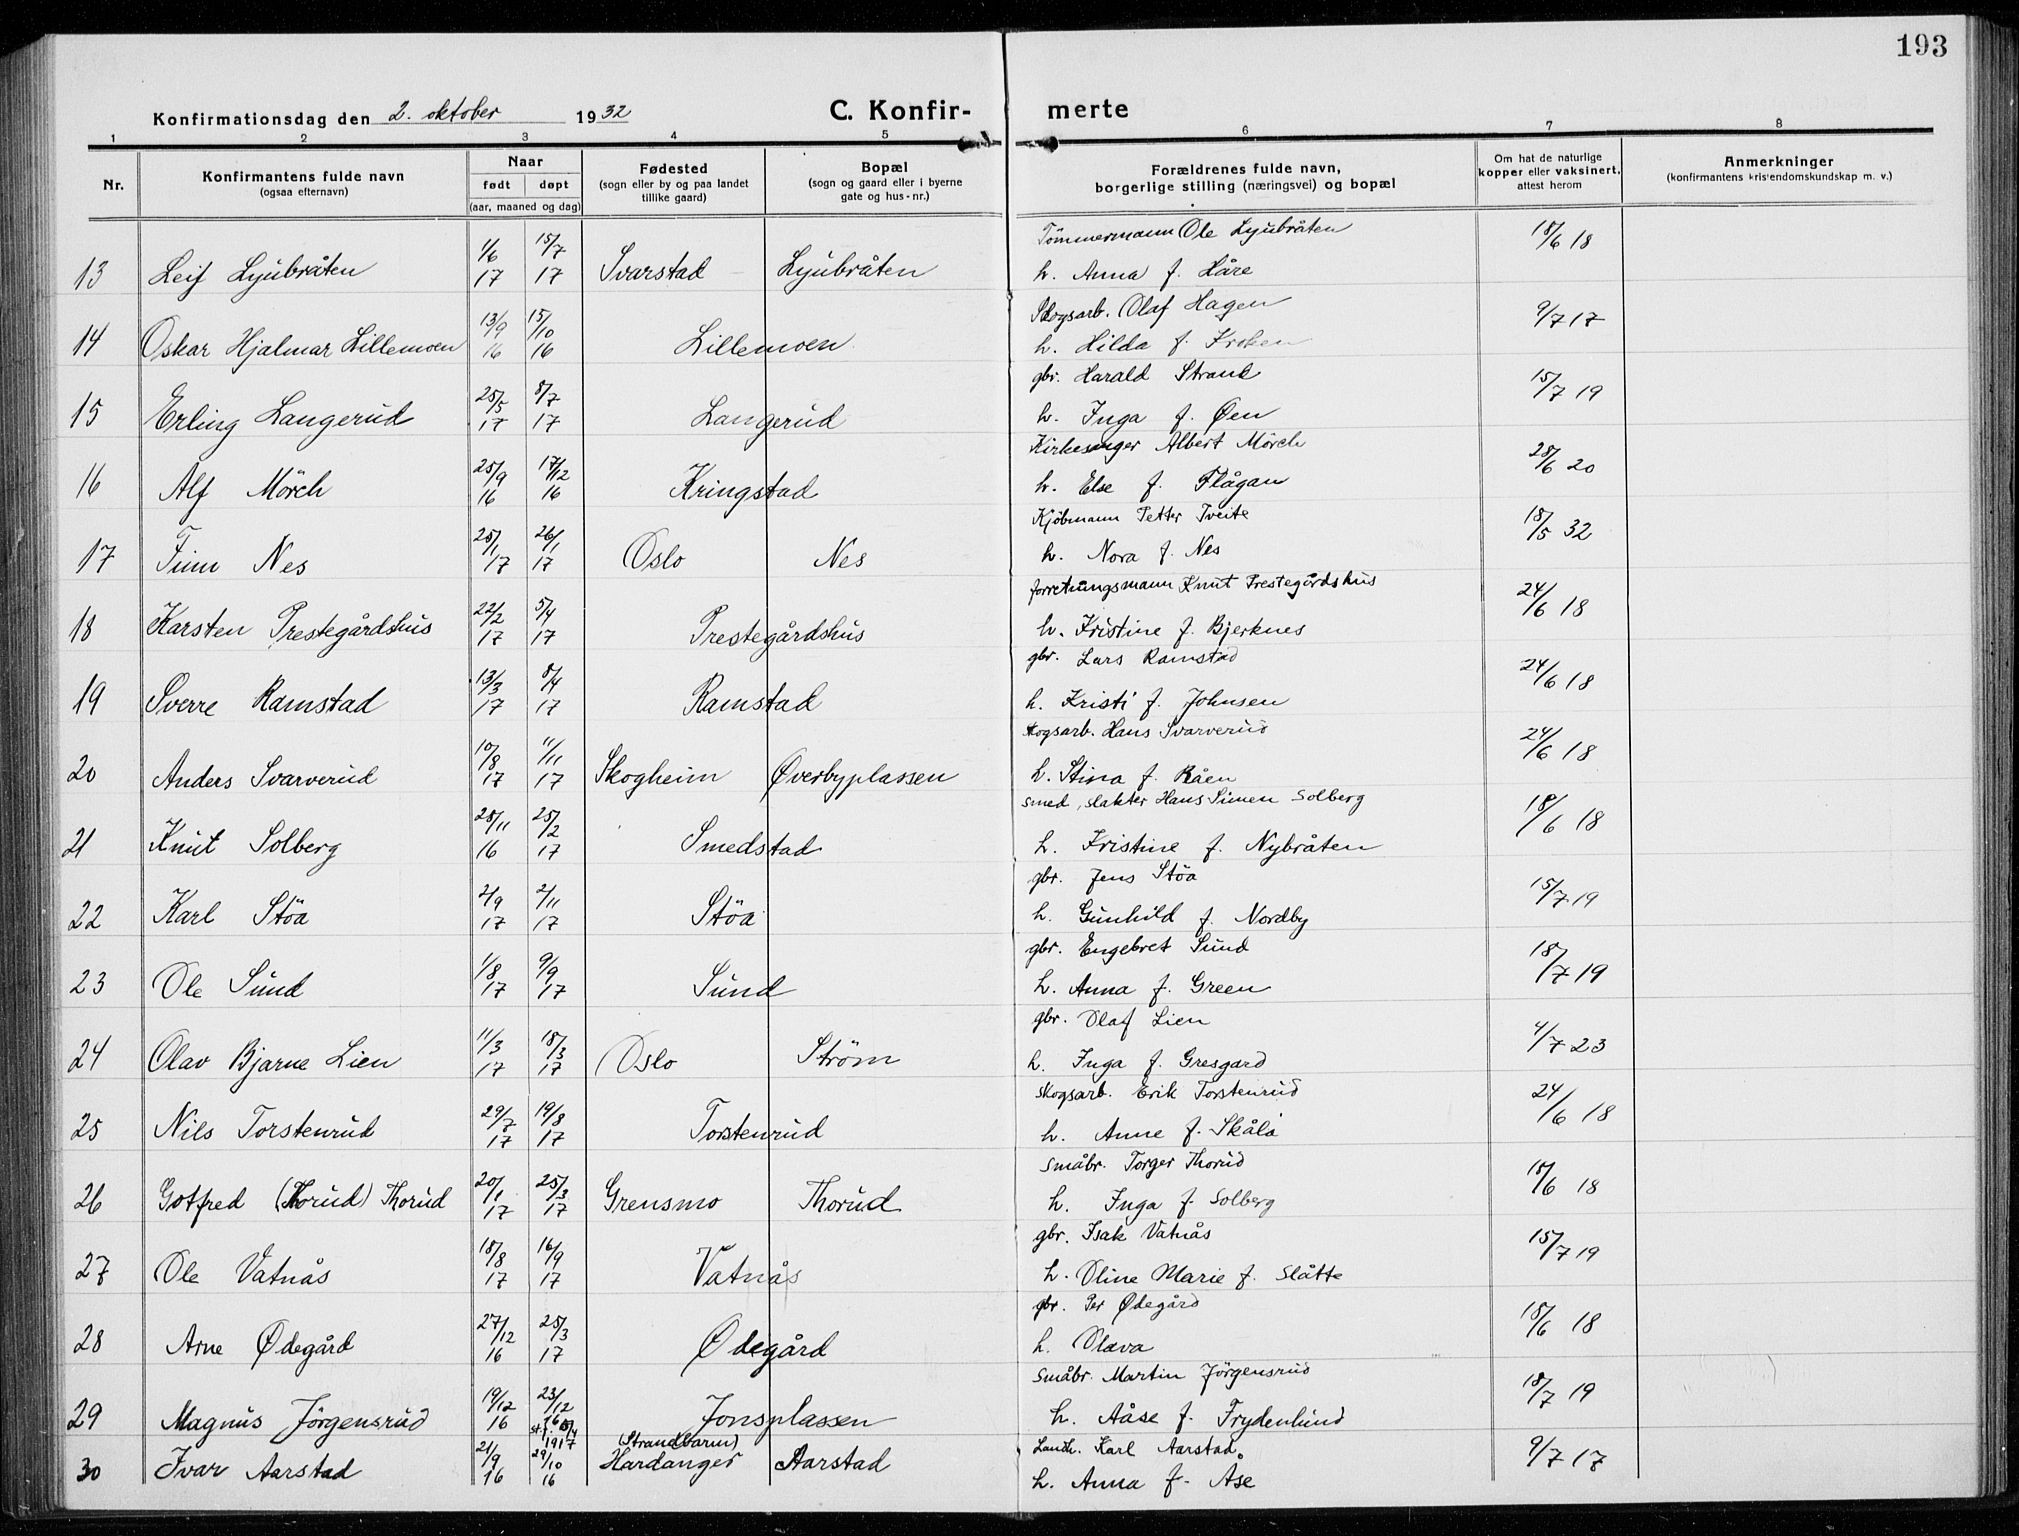 193
Konfirmationsdag den 2. oktober 1932 C. Konfir- merte
1 2 3 4 5 6 7 8
Nr. Konfirmantens fulde navn (ogsaa efternavn) Naar født døpt (aar, maaned og dag) Fødested (sogn eller by og paa landet tillike gaard) Bopæl (sogn og gaard eller i byerne gate og hus-nr.) Forældrenes fulde navn, borgerlige stilling (næringsvei) og bopæl Om hat de naturlige kopper eller vaksinert, attest herom Anmerkninger (konfirmantens kristendomskundskap m. v.)
13 Leif Ljubråten 1/6 17 15/7 17 Svarstad Ljubråten Tömmermann Ole Ljubråten 18/6 18
h. Anna f. Håre
14 Oskar Hjalmar Lillemoen 13/9 16 15/10 16 Lillemoen Skogsarb. Olaf Hagen 9/7 17
h. Hilda f. Kroken
15 Erling Langerud 25/5 17 8/7 17 Langerud gbr. Harald Strand 15/7 19
h. Inga f. Øen
16 Alf Mörch 25/9 16 17/12 16 Kringstad Kirkesanger Albert Mörch 28/6 20
h. Else f. Flågan
17 Finn Nes 25/1 17 26/1 17 Oslo Nes Kjöbmann Petter Tveite 18/5 32
h. Nora f. Nes
18 Karsten Prestegårdshus 22/2 17 5/4 17 Prestegårdshus forretningsmann Knut Prestegårdshus 24/6 18
h. Kristine f. Bjerknes
19 Sverre Ramstad 13/3 17 8/4 17 Ramstad gbr. Lars Ramstad 24/6 18
h. Kristi f. Johnsen
20 Anders Svarverud 10/8 17 11/11 17 Skogheim Øverbyplassen skogsarb. Hans Svarverud 24/6 18
h. Stina f. Råen
21 Knut Solberg 28/11 16 25/2 17 Smedstad smed, slakter Hans Simen Solberg 18/6 18
h. Kristine f. Nybråten
22 Karl Stöa 2/9 17 2/11 17 Stöa gbr. Jens Stöa 15/7 19
h. Gunhild f. Nordby
23 Ole Sund 1/8 17 9/9 17 Sund gbr. Engebret Sund 18/7 19
h. Anna f. Green
24 Olav Bjarne Lien 11/3 17 18/3 17 Oslo Ström gbr. Olaf Lien 4/7 23
h. Inga f. Gresgard
25 Nils Torstenrud 29/7 17 19/8 17 Torstenrud skogsarb. Erik Torstenrud 24/6 18
h. Anne f. Skåla
26 Gotfred (Thorud) Thorud 20/1 17 25/3 17 Grensmo Thorud småbr. Torger Thorud 18/6 18
h. Inga f. Solberg
27 Ole Vatnås 18/8 17 16/9 17 Vatnås gbr. Isak Vatnås 15/7 19
h. Oline Marie f. Slåtte
28 Arne Ødegård 27/12 16 25/3 17 Ødegård gbr. Per Ødegård 18/6 18
h. Olava
29 Magnus Jörgensrud 19/12 16 23/12 16 Jonsplassen småbr. Martin Jörgensrud 18/7 19
1917 h. Aåse f. Frydenlund
30 Ivar Aarstad 21/9 16 29/10 16 (Strandbarm) Hardanger Aarstad Landh. Karl Aarstad 9/7 17
h. Anna f. Åse